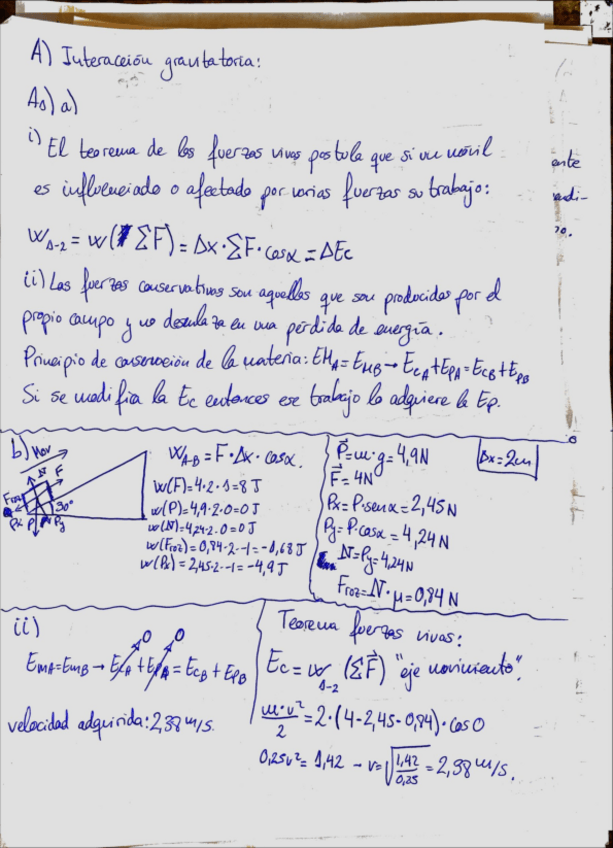 A) Interacción gravitatoria:
A1) a)
i) El teorema de las fuerzas vivas postula que si un móvil
es influenciado o afectado por varias fuerzas su trabajo:
W1-2 = W(ΣF) = Δx·ΣF·cosα = ΔEc
ii) Las fuerzas conservativas son aquellas que son producidas por el
propio campo y no desenlaza en una pérdida de energía.
Principio de conservación de la materia: EMA = EMB → EcA + EpA = EcB + EpB
Si se modifica la Ec entonces ese trabajo lo adquiere la Ep.
b) Mov
N F
Froz
Px P Py 30°
WA-B = F·Δx·cosα.
W(F) = 4·2·1 = 8 J
W(P) = 4,9·2·0 = 0 J
W(N) = 4,24·2·0 = 0 J
W(Froz) = 0,84·2·-1 = -1,68 J
W(Px) = 2,45·2·-1 = -4,9 J
P = m·g = 4,9 N
F = 4N
Px = P·senα = 2,45 N
Py = P·cosα = 4,24 N
N = Py = 4,24N
Froz = N·μ = 0,84 N
Δx = 2m
ii)
EmA = EmB → EcA + EpA = EcB + EpB
0 0
velocidad adquirida: 2,38 m/s.
Teorema fuerzas vivas:
Ec = W1-2 (ΣF) "eje movimiento".
m·v²/2 = 2·(4-2,45-0,84)·cos0
0,25v² = 1,42 → v = √1,42/0,25 = 2,38 m/s.
ente
edi-